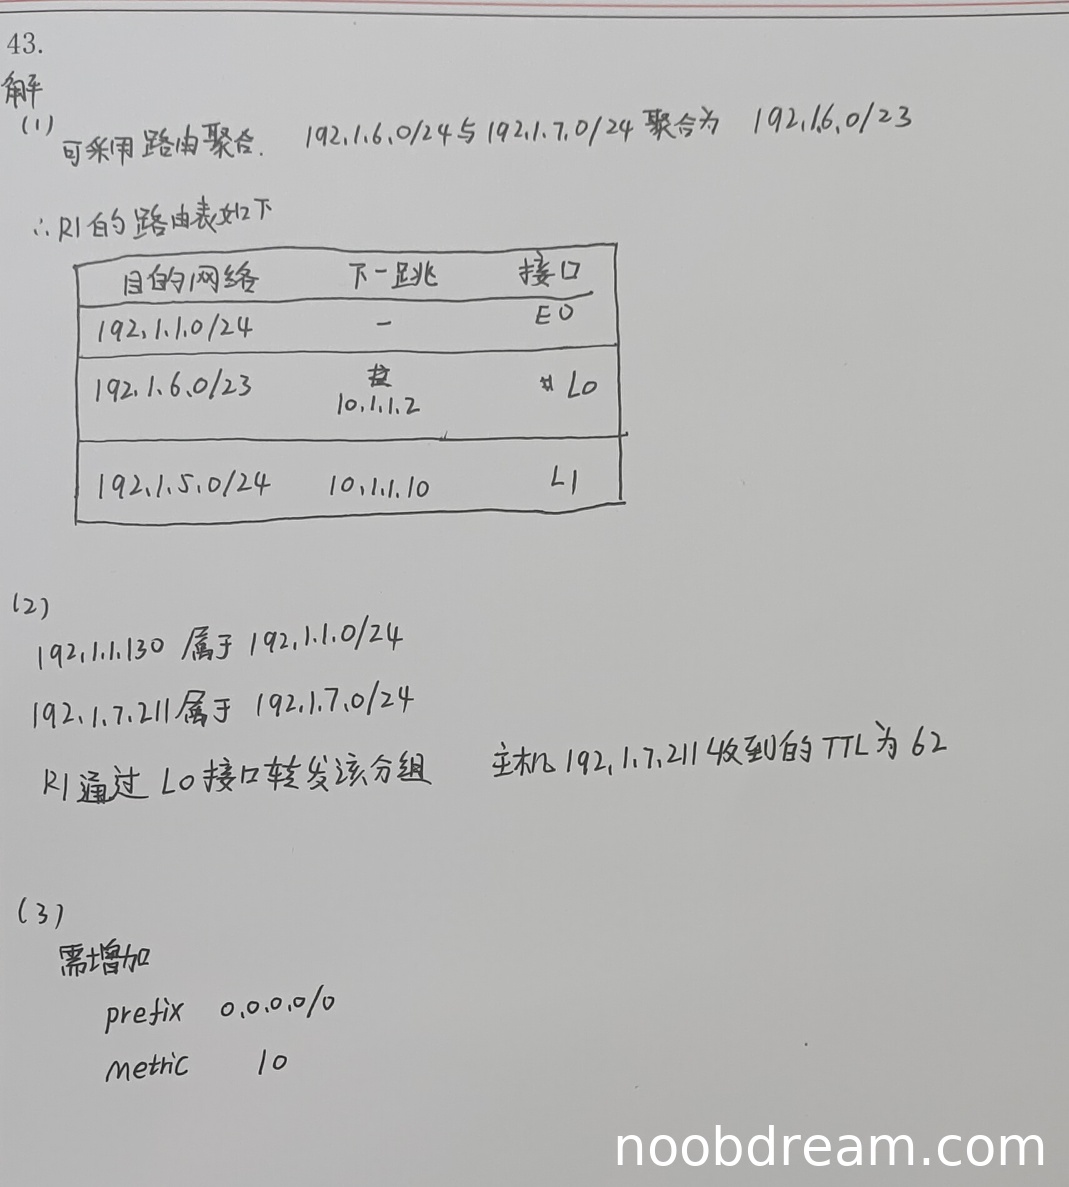 43.
解
(1)
可采用路由聚合. 192.1.6.0/24与192.1.7.0/24聚合为 192.1.6.0/23
∴R1的路由表如下
目的网络 下一跳 接口
192.1.1.0/24 - E0
192.1.6.0/23 10.1.1.2 L0
192.1.5.0/24 10.1.1.10 L1
(2)
192.1.1.130 属于 192.1.1.0/24
192.1.7.211属于 192.1.7.0/24
R1通过 L0接口转发该分组 主机192.1.7.211收到的TTL为62
(3)
需增加
prefix 0.0.0.0/0
metric 10
noobdream.com